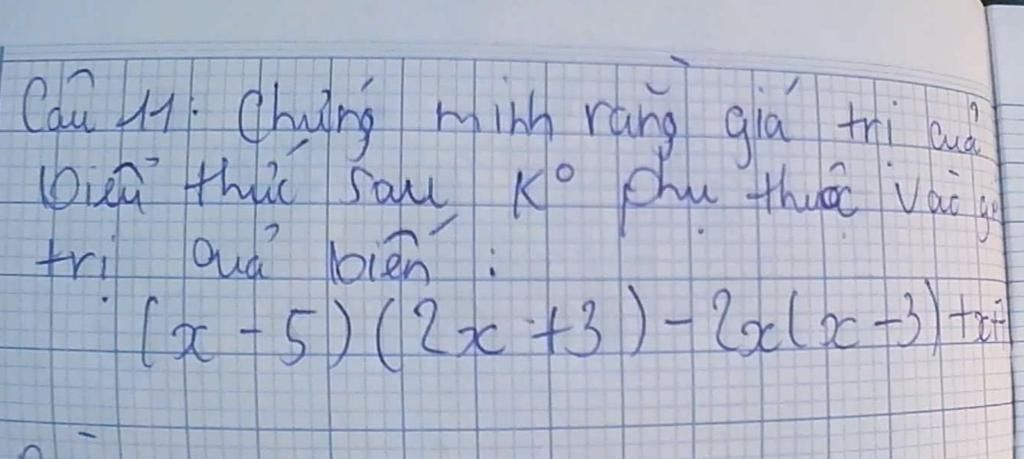 Câu 11: Chứng minh rằng giá trị của
biểu thức sau K° phụ thuộc vào
trị quả biến :
(x - 5)(2x + 3) - 2x(x - 3) + x +